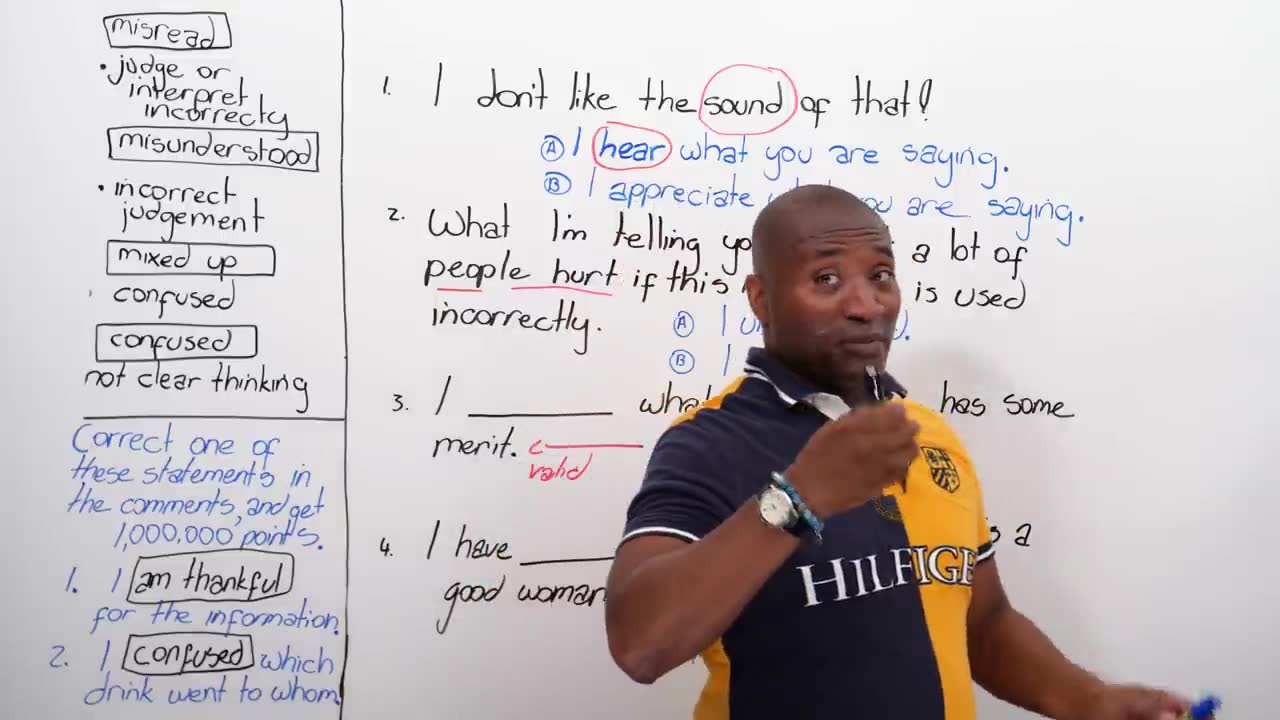 misread
• judge or
interpret
incorrecty
misunderstood
• incorrect
judgement
mixed up
confused
confused
not clear thinking
Correct one of
these statements in
the comments, and get
1,000,000 points.
1. I am thankful
for the information.
2. I confused which
drink went to whom.
1. I don't like the sound of that!
A I hear what you are saying.
B I appreciate you are saying.
2. What I'm telling a lot of
people hurt if this is used
incorrectly.
A I
B I
3. I ________ has some
merit.
valid
4. I have ________ a
good woman
HILFIGE